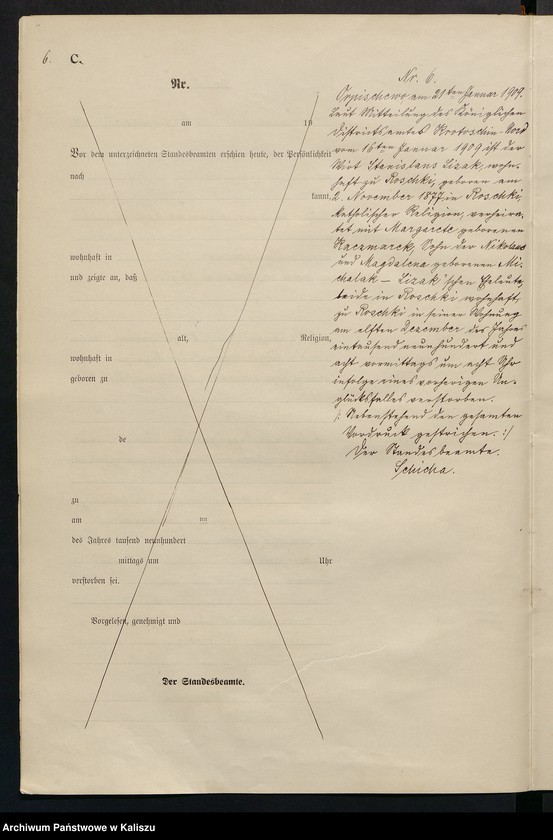 6.
C.
Nr.
am 19
Vor dem unterzeichneten Standesbeamten erschien heute, der Persönlichkeit
nach
kannt,
wohnhaft in
und zeigte an, daß
alt, Religion,
wohnhaft in
geboren zu
de
zu
am
des Jahres tausend neunhundert
mittags um Uhr
verstorben sei.
Vorgelesen, genehmigt und
Der Standesbeamte.
Nr. 6.
Orpischewo am 21ten Januar 1909.
Laut Mitteilung des Königlichen
Distriktsamtes Krotoschin-Nord
vom 16ten Januar 1909 ist der
Wirt Stanislaus Lizak, wohn-
haft zu Roschki, geboren am
2. November 1877 in Roschki,
katholischer Religion, verheira-
tet mit Margarete geborenen
Kaczmarek, Sohn der Nikolaus
und Magdalena geborenen Mi-
chalak – Lizak'schen Eheleute,
beide in Roschki wohnhaft,
zu Roschki in seiner Wohnung
am elften Dezember des Jahres
eintausend neunhundert und
acht vormittags um acht Uhr
infolge eines vorherigen Un-
glücksfalles verstorben.
/: Nebenstehend den gesamten
Vordruck gestrichen. :/
Der Standesbeamte.
Schicha.
Archiwum Państwowe w Kaliszu